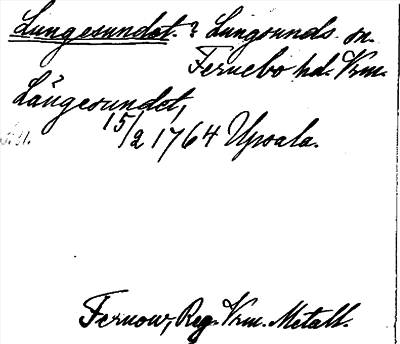 Lungesundet. ? Lungsunds sn.
Fernebo hd. Vrm.
Långesundet,
15/2 1764 Upsala.
Fernow, Reg. Vrm. Metall.